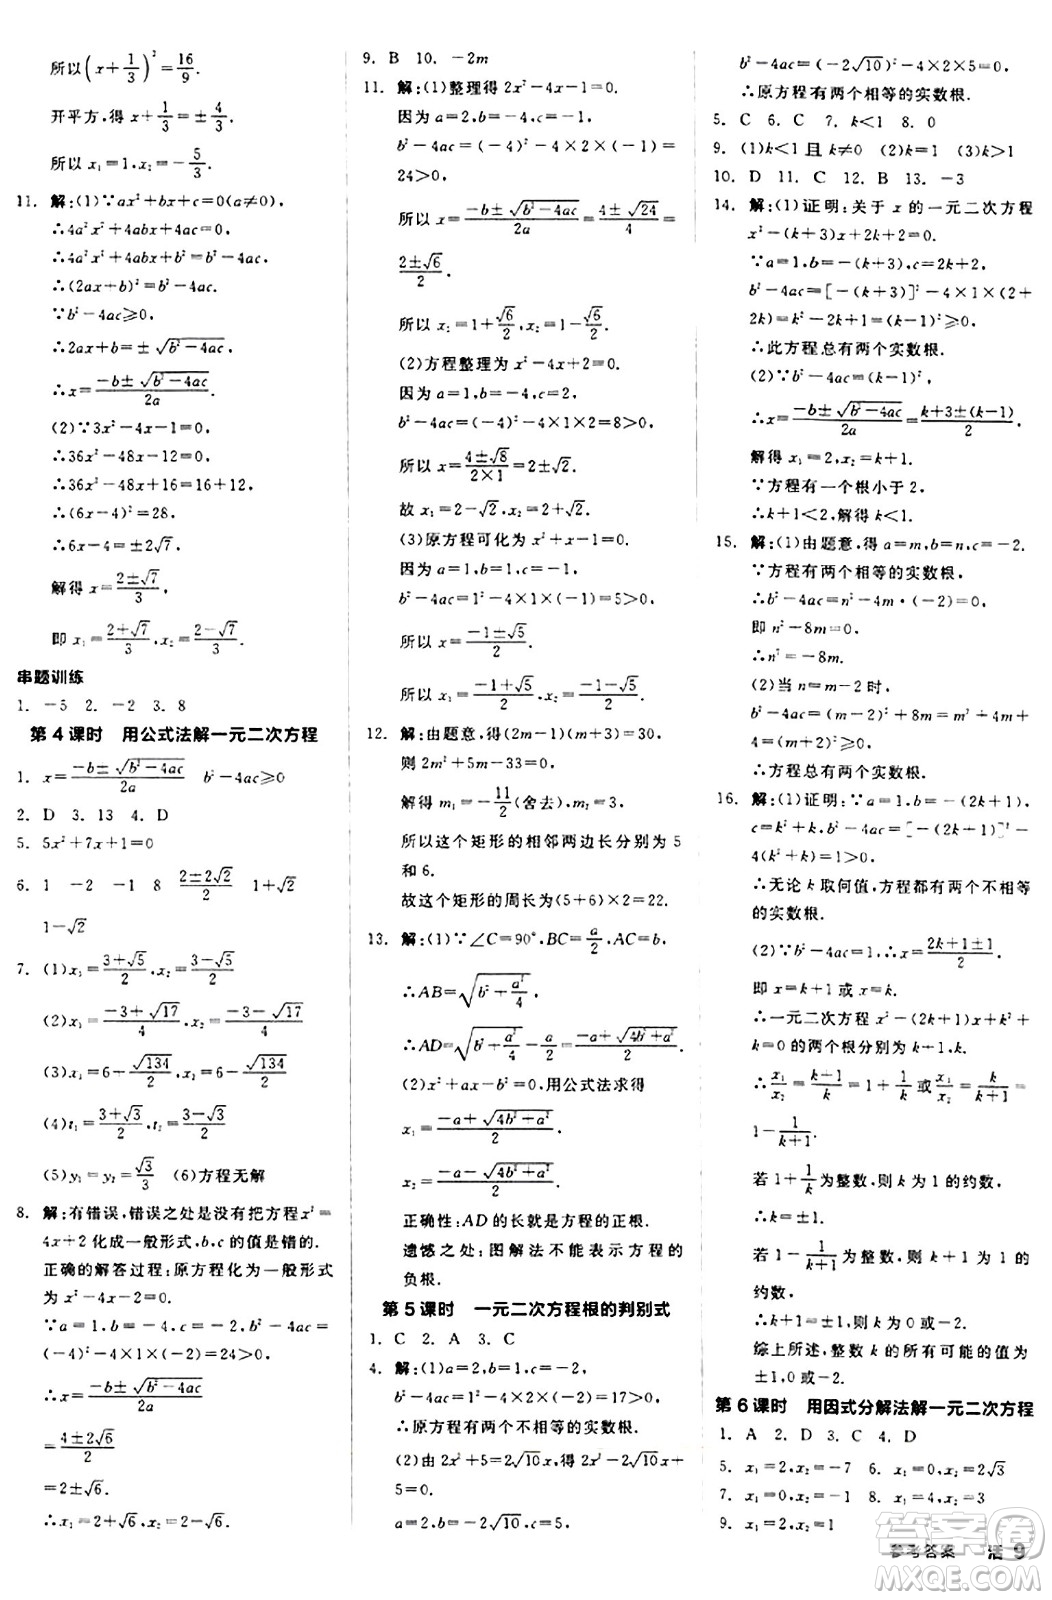 所以(x+1/3)²=16/9.
开平方,得 x+1/3=±4/3.
所以 x₁=1,x₂=-5/3.
11. 解:(1)∵ax²+bx+c=0(a≠0),
∴4a²x²+4abx+4ac=0,
∴4a²x²+4abx+b²=b²-4ac,
∴(2ax+b)²=b²-4ac.
∵b²-4ac≥0,
∴2ax+b=±√(b²-4ac),
∴x=(-b±√(b²-4ac))/2a.
(2)∵3x²-4x-1=0,
∴36x²-48x-12=0,
∴36x²-48x+16=16+12,
∴(6x-4)²=28,
∴6x-4=±2√7,
解得 x=(2±√7)/3,
即 x₁=(2+√7)/3,x₂=(2-√7)/3.
串题训练
1. -5 2. -2 3. 8
第4课时 用公式法解一元二次方程
1. x=(-b±√(b²-4ac))/2a b²-4ac≥0
2. D 3. 13 4. D
5. 5x²+7x+1=0
6. 1 -2 -1 8 (2±2√2)/2 1+√2
1-√2
7. (1)x₁=(3+√5)/2,x₂=(3-√5)/2
(2)x₁=(-3+√17)/4,x₂=(-3-√17)/4
(3)x₁=6-√134/2,x₂=6+√134/2
(4)t₁=(3+√3)/2,t₂=(3-√3)/2
(5)y₁=y₂=√3/3 (6)方程无解
8. 解:有错误,错误之处是没有把方程x²=
4x+2化成一般形式,b,c的值是错的.
正确的解答过程:原方程化为一般形式
为 x²-4x-2=0.
∵a=1,b=-4,c=-2,b²-4ac=
(-4)²-4×1×(-2)=24>0,
∴x=(-b±√(b²-4ac))/2a
=(4±2√6)/2
=2±√6.
∴x₁=2+√6,x₂=2-√6.
9. B 10. -2m
11. 解:(1)整理得 2x²-4x-1=0.
因为 a=2,b=-4,c=-1,
b²-4ac=(-4)²-4×2×(-1)=
24>0,
所以 x=(-b±√(b²-4ac))/2a=(4±√24)/4=
(2±√6)/2.
所以 x₁=1+√6/2,x₂=1-√6/2.
(2)方程整理为 x²-4x+2=0.
因为 a=1,b=-4,c=2,
b²-4ac=(-4)²-4×1×2=8>0,
所以 x=(4±√8)/(2×1)=2±√2.
故 x₁=2-√2,x₂=2+√2.
(3)原方程可化为 x²+x-1=0.
因为 a=1,b=1,c=-1,
b²-4ac=1²-4×1×(-1)=5>0,
所以 x=(-1±√5)/2.
所以 x₁=(-1+√5)/2,x₂=(-1-√5)/2.
12. 解:由题意,得(2m-1)(m+3)=30,
则 2m²+5m-33=0,
解得 m₁=-11/2(舍去),m₂=3,
所以这个矩形的相邻两边长分别为 5
和6.
故这个矩形的周长为(5+6)×2=22.
13. 解:(1)∵∠C=90°,BC=a/2,AC=b,
∴AB=√(b²+a²/4),
∴AD=√(b²+a²/4)-a/2=(-a+√(4b²+a²))/2.
(2)x²+ax=b²,用公式法求得
x₁=(-a+√(4b²+a²))/2,
x₂=(-a-√(4b²+a²))/2.
正确性:AD的长就是方程的正根.
遗憾之处:图解法不能表示方程的
负根.
第5课时 一元二次方程根的判别式
1. C 2. A 3. C
4. 解:(1)a=2,b=1,c=-2,
b²-4ac=1²-4×2×(-2)=17>0,
∴原方程有两个不相等的实数根.
(2)由 2x²+5=2√10x,得 2x²-2√10x+
5=0.
a=2,b=-2√10,c=5,
b²-4ac=(-2√10)²-4×2×5=0,
∴原方程有两个相等的实数根.
5. C 6. C 7. k<1 8. 0
9. (1)k<1 且 k≠0 (2)k=1 (3)k>1
10. D 11. C 12. B 13. -3
14. 解:(1)证明:关于 x 的一元二次方程
x²-(k+3)x+2k+2=0.
∵a=1,b=-(k+3),c=2k+2,
∴b²-4ac=[-(k+3)]²-4×1×(2k+
2)=k²-2k+1=(k-1)²≥0,
∴此方程总有两个实数根.
(2)∵b²-4ac=(k-1)²,
∴x=(-b±√(b²-4ac))/2a=(k+3±(k-1))/2,
解得 x₁=2,x₂=k+1.
∵方程有一个根小于 2,
∴k+1<2,解得 k<1.
15. 解:(1)由题意,得 a=m,b=n,c=-2.
∵方程有两个相等的实数根,
∴b²-4ac=n²-4m·(-2)=0,
即 n²+8m=0,
∴n²=-8m.
(2)当 n=m-2 时,
b²-4ac=(m-2)²+8m=m²+4m+
4=(m+2)²≥0,
∴方程总有两个实数根.
16. 解:(1)证明:∵a=1,b=-(2k+1),
c=k²+k,∴b²-4ac=[-(2k+1)]²-
4(k²+k)=1>0,
∴无论 k 取何值,方程都有两个不相等
的实数根.
(2)∵b²-4ac=1,∴x=(2k+1±1)/2,
即 x=k+1 或 x=k.
∴一元二次方程 x²-(2k+1)x+k²+
k=0 的两个根分别为 k+1,k.
∴x₁/x₂=(k+1)/k=1+1/k 或 x₁/x₂=k/(k+1)=
1-1/(k+1).
若 1+1/k 为整数,则 k 为 1 的约数,
∴k=±1.
若 1-1/(k+1)为整数,则 k+1 为 1 的
约数,
∴k+1=±1,∴k=0 或 k=-2.
综上所述,整数 k 的所有可能的值为
±1,0或-2.
第6课时 用因式分解法解一元二次方程
1. A 2. D 3. C 4. D
5. x₁=2,x₂=-7 6. x₁=0,x₂=2√3
7. x₁=0,x₂=2 8. x₁=4,x₂=3
9. x₁=2,x₂=1
答案圈
MXQE.COM
参考答案 活 9